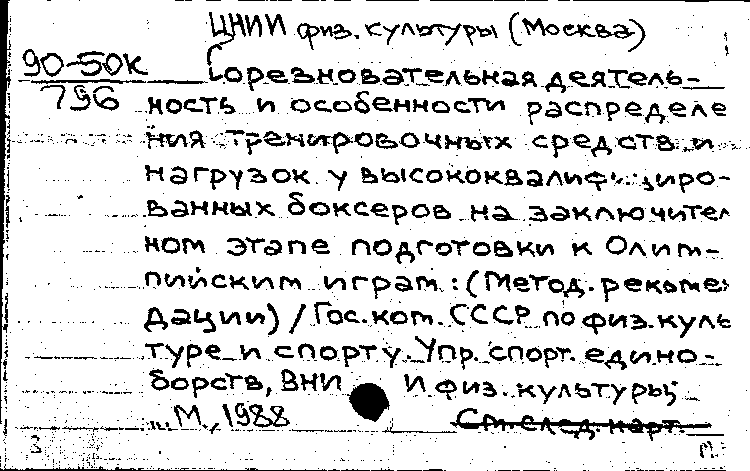 ЦНИИ физ. культуры (Москва)
90-50к
796
Сорезновательная деятель-
ность и особенности распределе
ния тренировочных средств и
нагрузок у высококвалифициро-
ванных боксеров на заключител
ном этапе подготовки к Олим-
пийским играм : (Метод. рекомен
дации) / Гос. ком. СССР по физ. куль
туре и спорту. Упр. спорт. едино-
борств, ВНИИ физ. культуры;
М., 1988
См. след. карт.
3
М.